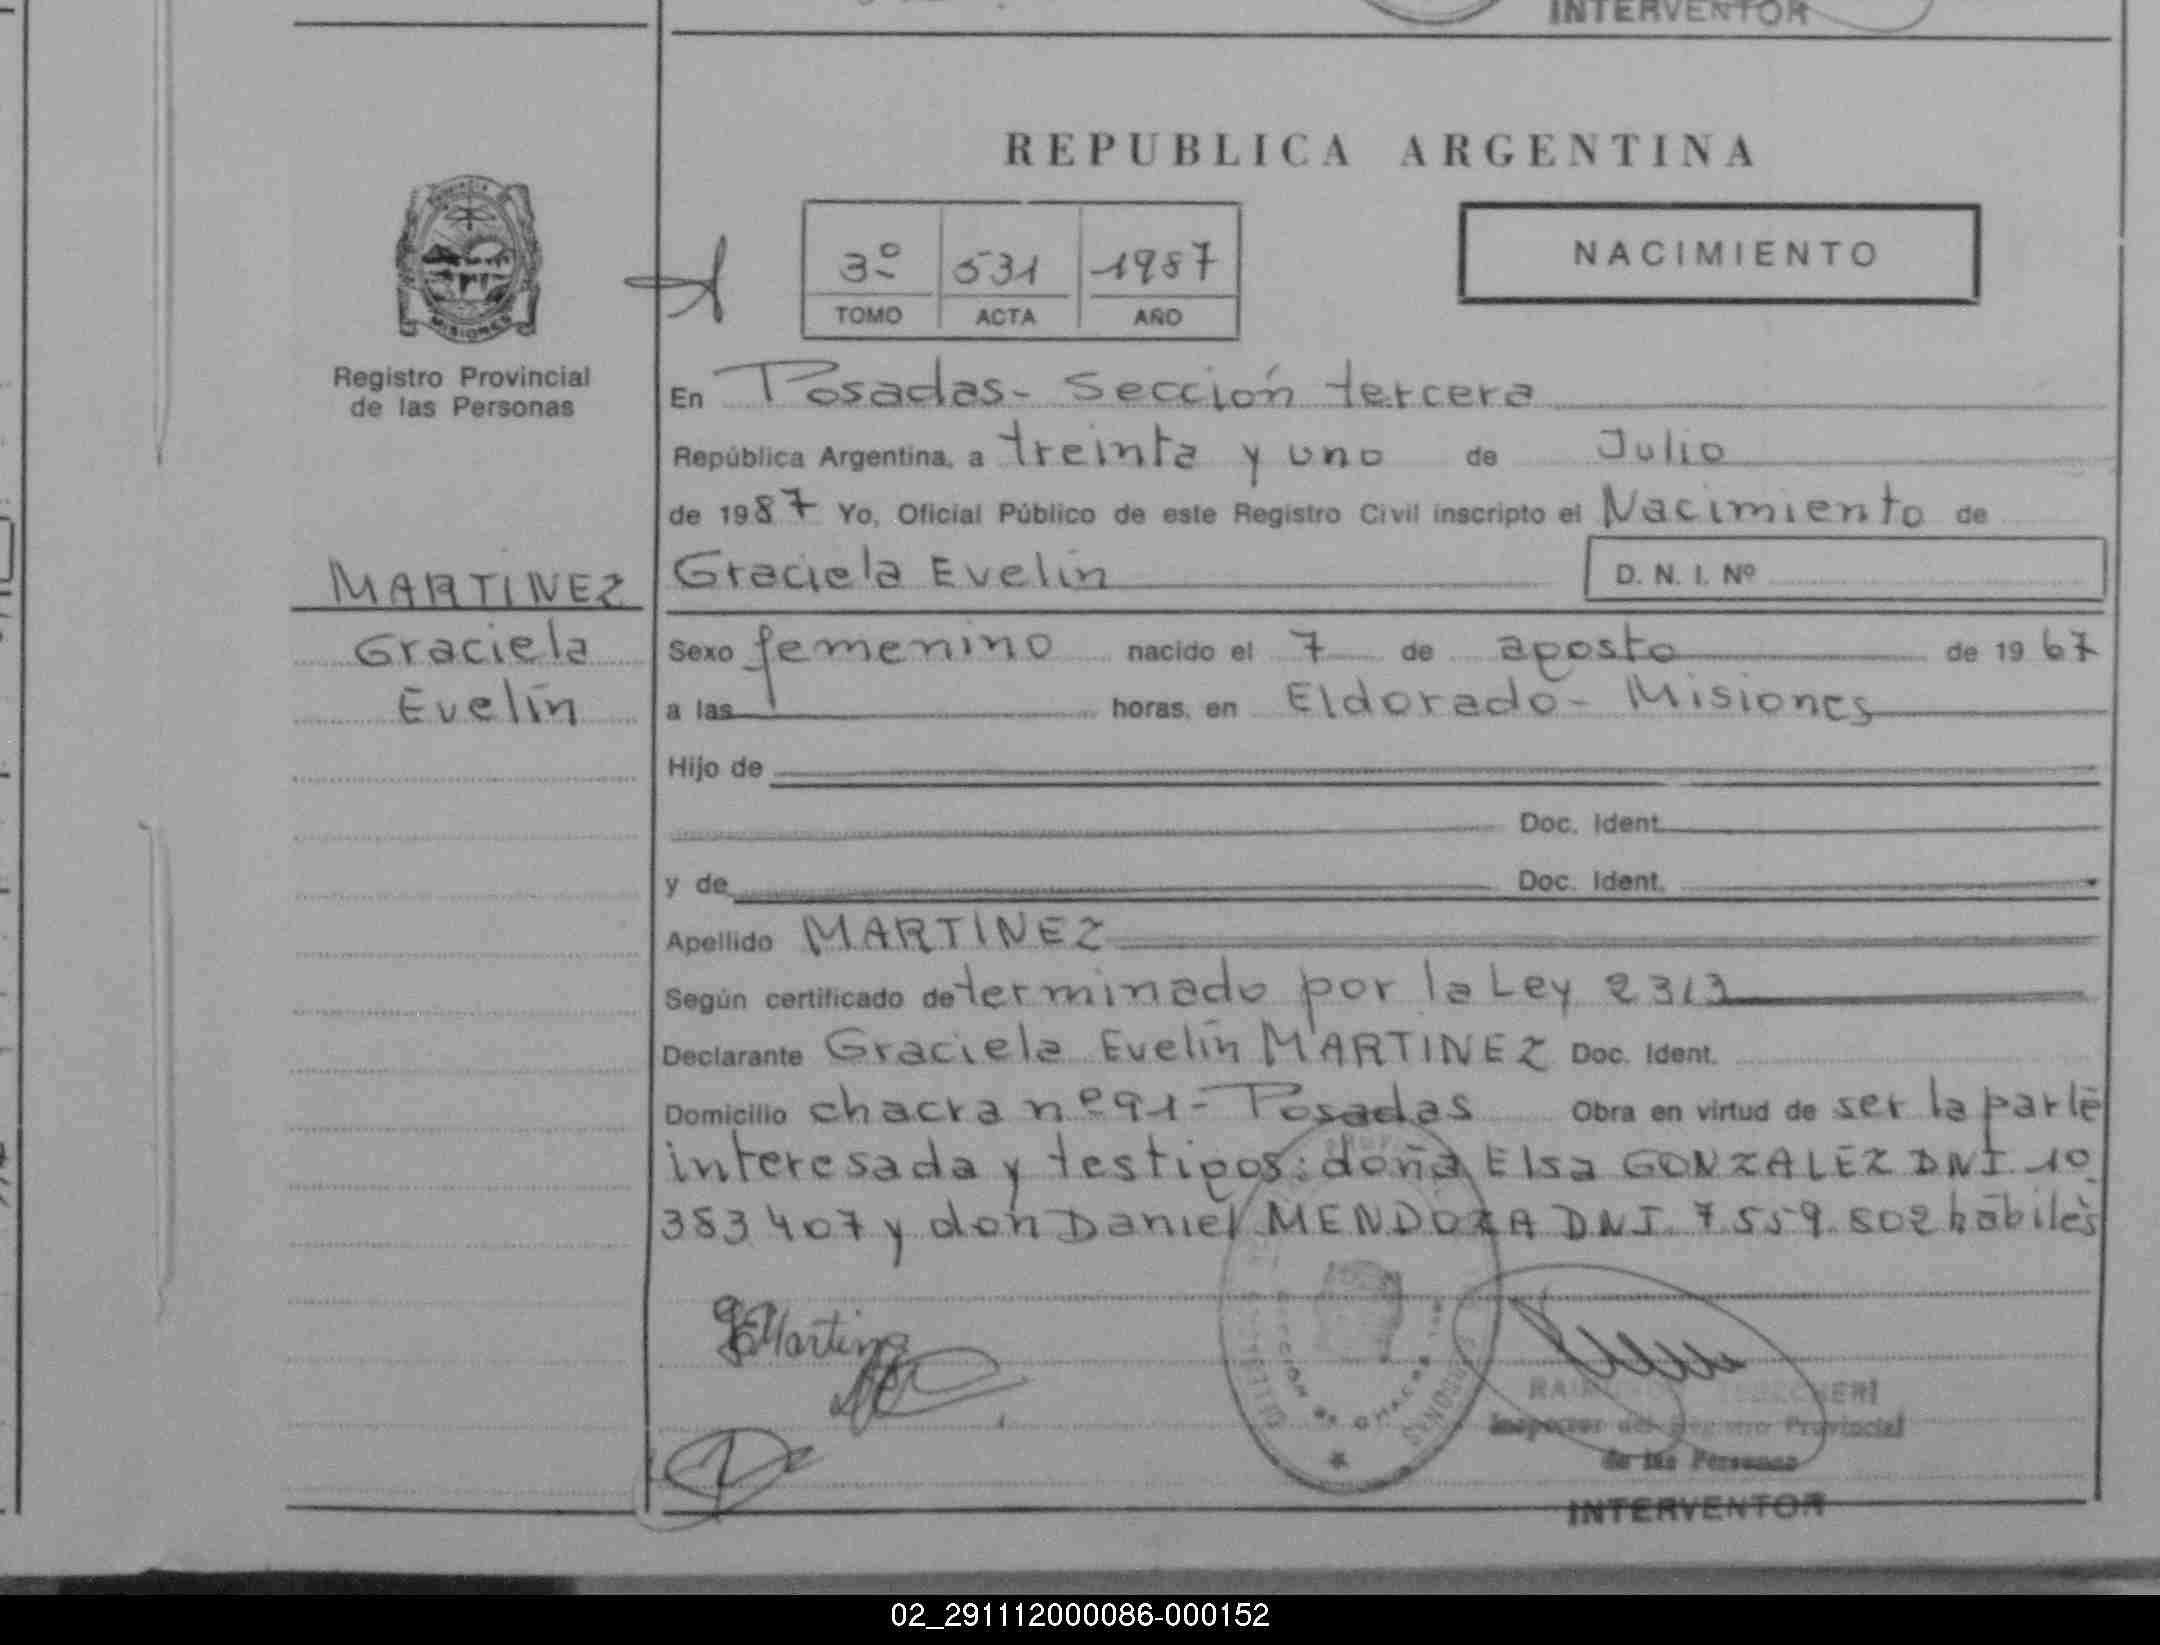 INTERVENTOR
REPUBLICA ARGENTINA
NACIMIENTO
3º 531 1987
TOMO ACTA AÑO
PROVINCIA
MISIONES
Registro Provincial
de las Personas
MARTINEZ
Graciela
Evelín
En Posadas- Sección tercera
República Argentina, a treinta y uno de Julio
de 1987 Yo, Oficial Público de este Registro Civil inscripto el Nacimiento de
Graciela Evelín
D. N. I. Nº
Sexo femenino nacido el 7 de agosto de 1967
a las horas, en Eldorado- Misiones
Hijo de
Doc. Ident.
y de Doc. Ident.
Apellido MARTINEZ
Según certificado determinado por la Ley 2313
Declarante Graciela Evelín MARTINEZ Doc. Ident.
Domicilio chacra nº 91- Posadas Obra en virtud de ser la parte
interesada y testigos: doña Elsa GONZALEZ DNI. 10.
383407 y don Daniel MENDOZA DNI. 7.559.802 hábiles
GEMartinez
Inspector del Registro Provincial
de las Personas
INTERVENTOR
02_291112000086-000152